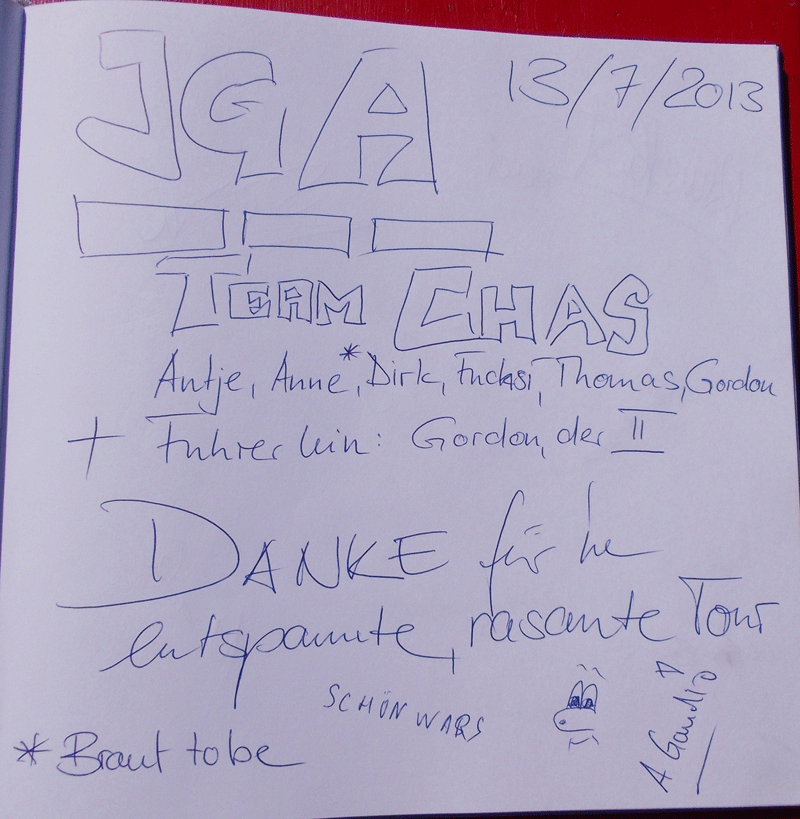 JGA 13/7/2013
TEAM CHAS
Antje, Anne*, Dirk, Fuchsi, Thomas, Gordon
+ Führerlein: Gordon, der II
DANKE für ne
entspannte, rasante Tour
SCHÖN WARS
A Gaudi
* Braut to be